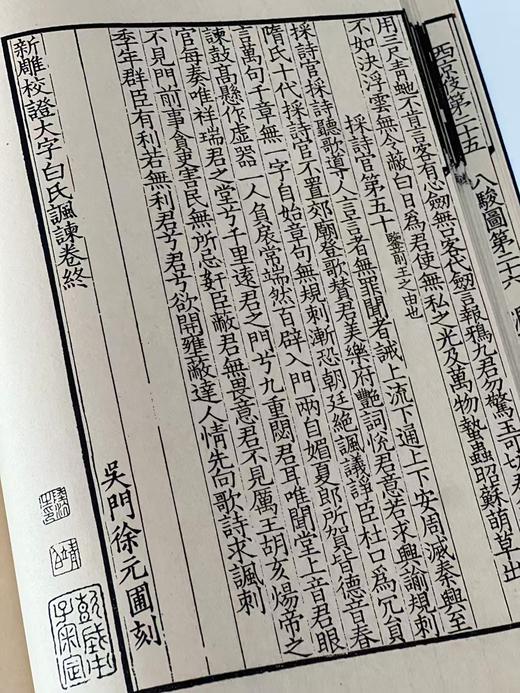 西凉伎第二十五
八駿圖第二十六
用三尺青虵不肯言客有心劒無客代劒言報鴉九君勿驚玉可切君
不如決浮雲無令敝白日為君使無私之光及萬物蟄蟲昭蘇萌草出
採詩官第五十 鑒前王之由也
採詩官採詩聽歌導人言言者無罪聞者誡上流下通上下安周滅秦興至
隋氏十代採詩官不置郊廟登歌賛君美樂府艷詞恱君意若求興諭規刺
言萬句千章無一字自始章句無規刺漸恐朝廷絶諷議諍臣杜口為冗員
諫鼓高懸作虚器一人負扆常端然百辟入門兩自媚夏郎所賀皆德音春
官每奏唯祥瑞君之堂兮千里遠君之門兮九重閟君耳唯聞堂上音君眼
不見門前事貪吏害民無所忌奸臣蔽君無畏意君不見厲王胡亥煬帝之
季年群臣有利若無利君兮君兮欲開壅蔽達人情先句歌詩求諷刺
新雕校證大字白氏諷諫卷終
吳門徐元圃刻